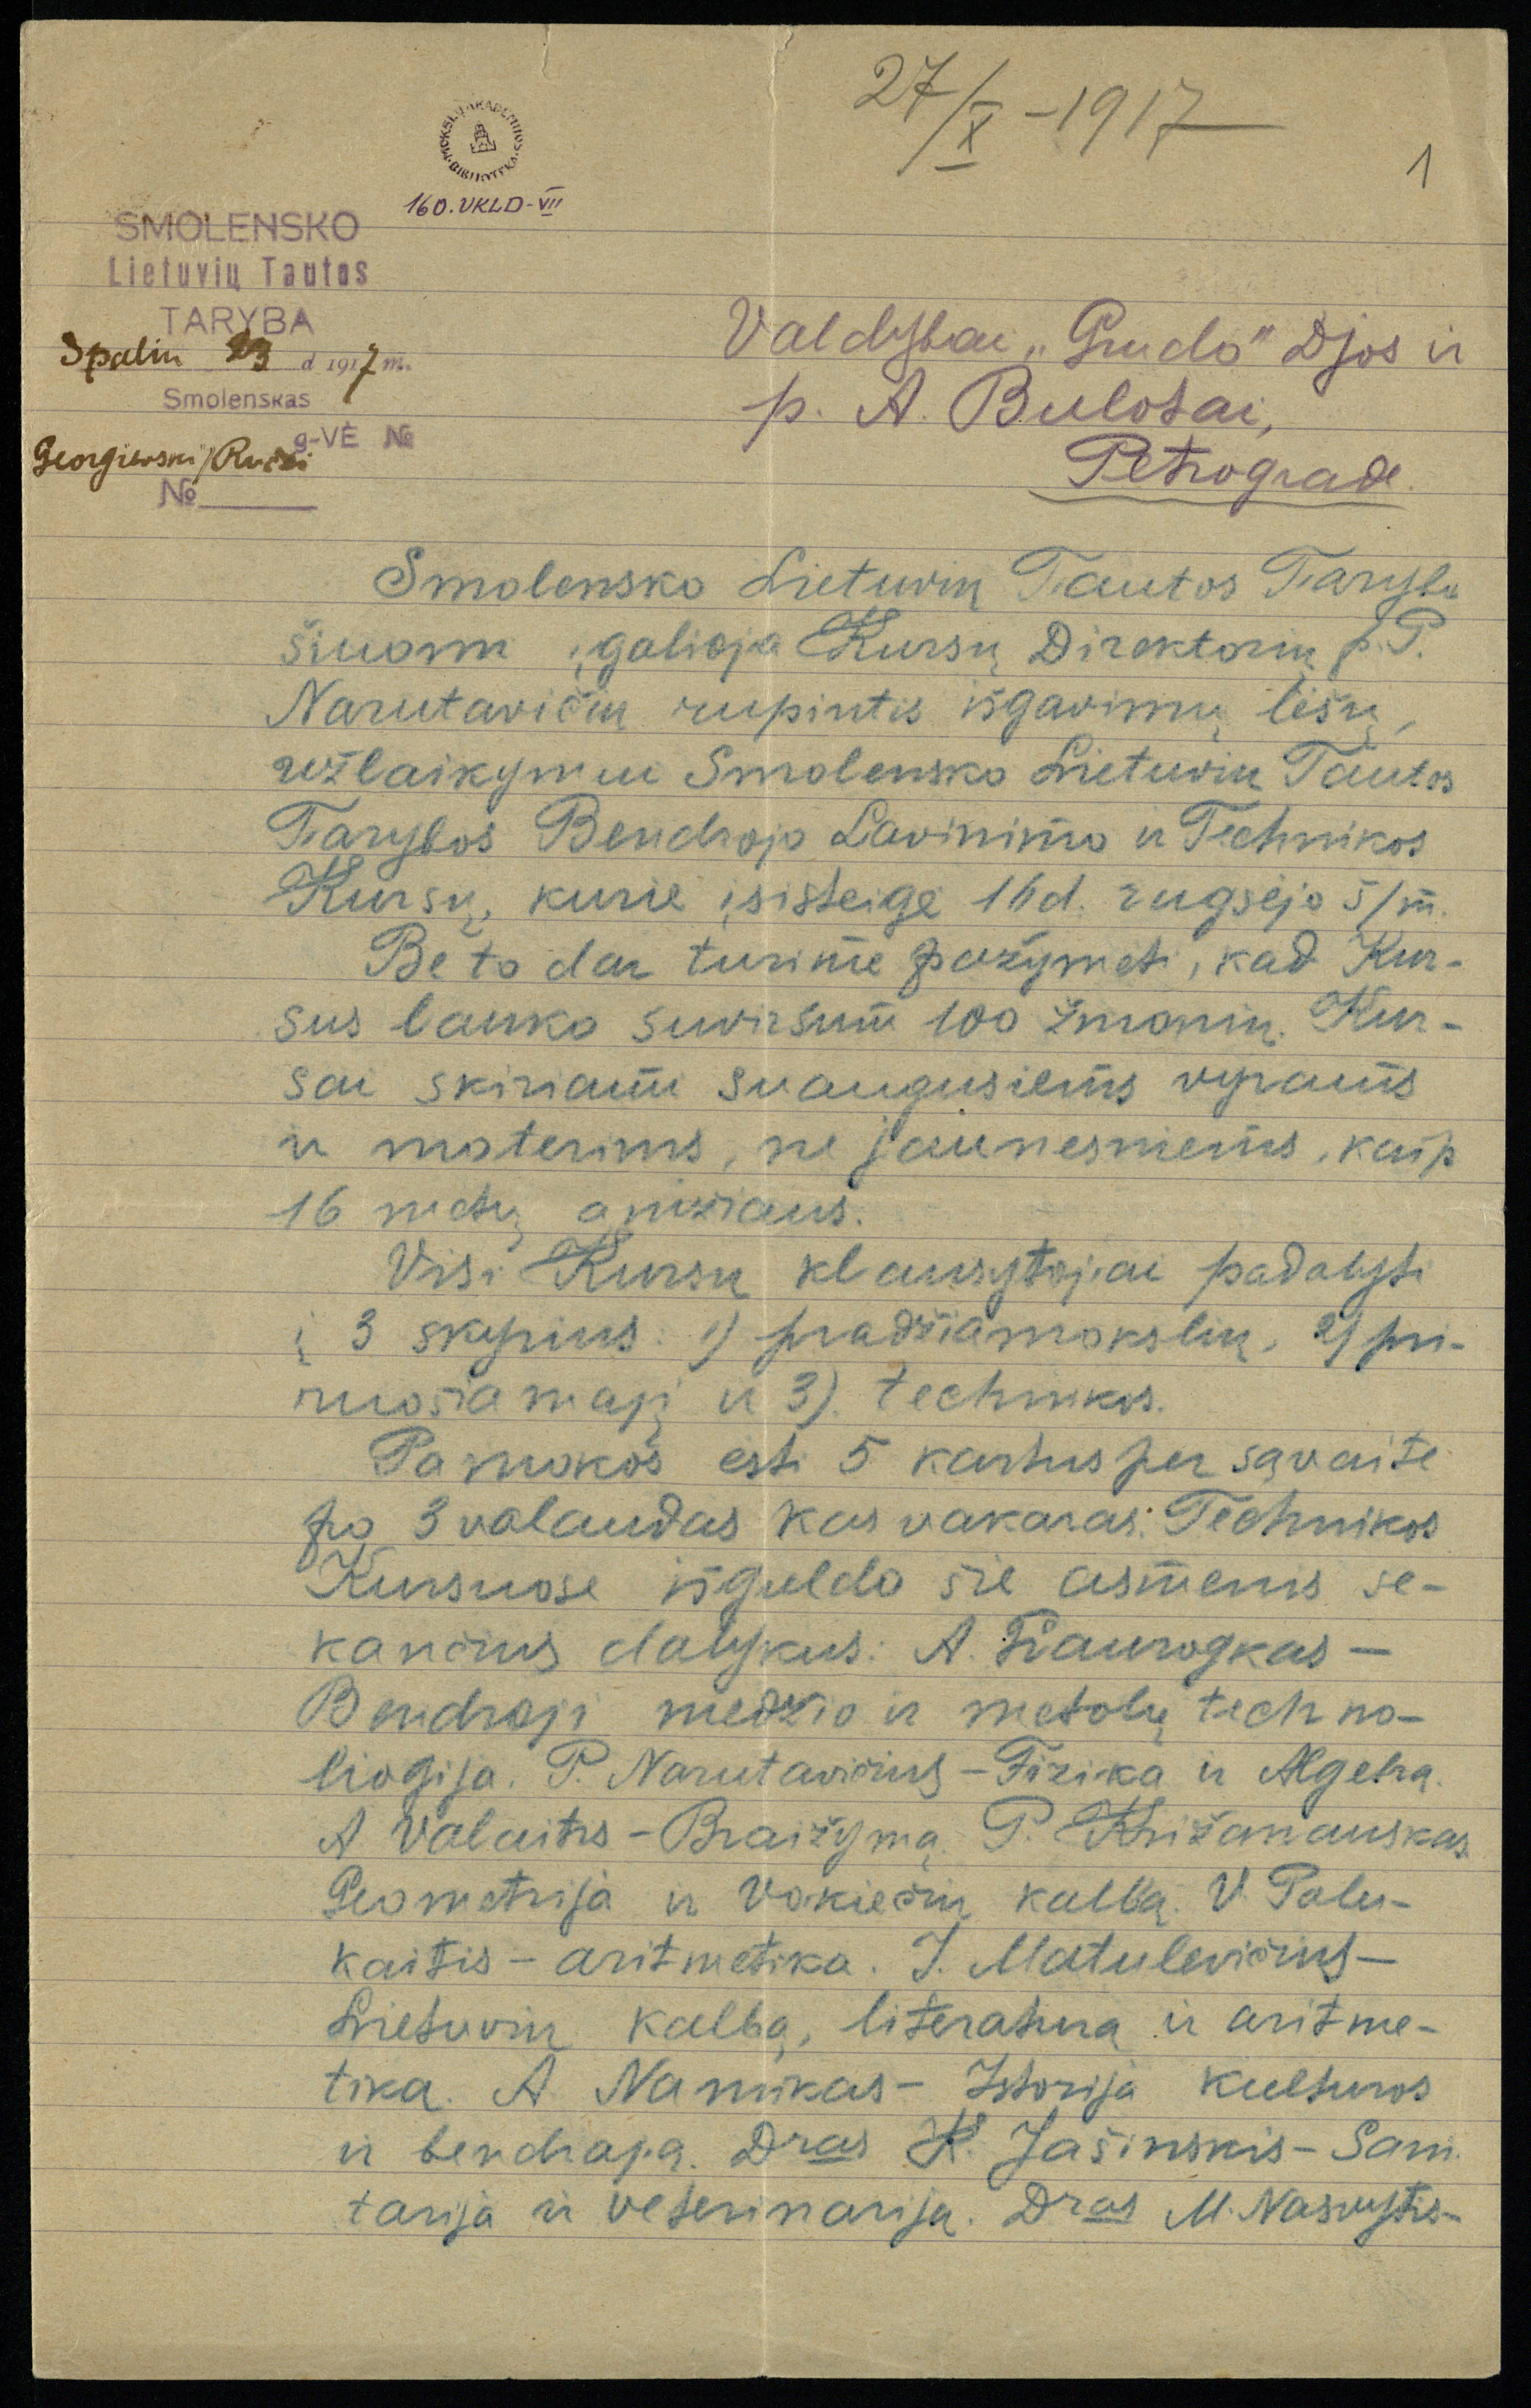 27/X - 1917
1
MOKSLŲ AKADEMIJOS BIBLIOTEKA
160. VKLD-VII
SMOLENSKO
Lietuvių Tautos
TARYBA
Spalių 23 d 1917 m.
Smolenskas
g-VĖ №
Georgievski Ručei
№
Valdybai „Grudo" Djos ir
p. A. Bulotai,
Petrograde.
Smolensko Lietuvių Tautos Taryba
šiuomi įgalioja Kursų Direktorių p. P.
Narutavičių rupintis išgavimų lėšų,
užlaikymui Smolensko Lietuvių Tautos
Tarybos Bendrojo Lavinimo ir Technikos
Kursų, kurie įsisteigė 16 d. rugsėjo š/m.
Be to dar turime pažymėti, kad Kur-
sus lanko suviršum 100 žmonių. Kur-
sai skiriami suaugusiems vyrams
ir moterims, ne jaunesniems, kaip
16 metų amžiaus.
Visi Kursų klausytojai padalyti
į 3 skyrius: 1) pradžiamokslių, 2) pri-
ruošiamąjį ir 3). technikos.
Pamokos esti 5 kartus per sąvaitę
po 3 valandas kas vakaras. Technikos
Kursuose išguldo šie asmenis se-
kančius dalykus: A. Šiaurogkas –
Bendroji medžio ir metolų techno-
liogija. P. Narutavičius – Fizika ir Algebrą.
A Valaitis – Braižymą. P. Križanauskas
Geometrija ir Vokiečių kalbą. V. Palu-
kaitis – aritmetika. J. Matulevičius –
Lietuvių kalbą, literaturą ir aritme-
tika. A Namikas – Istorija Kulturos
ir bendrąją. Dras K. Jašinskis – Sani-
tarija ir veterinariją. Dras M. Nasvytis –